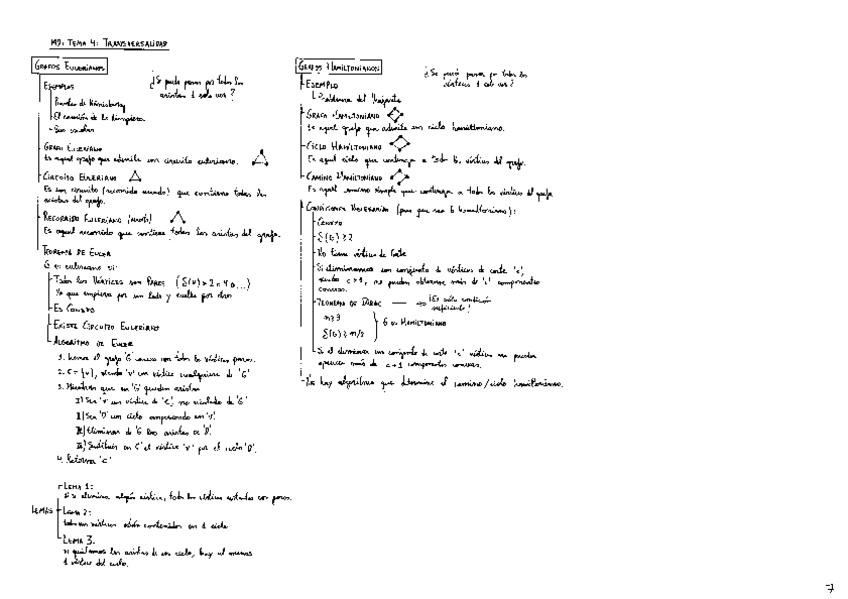 MD: TEMA 4: TRANSVERSALIDAD
GRAFOS EULERIANOS
¿Se puede pasar por todas las
aristas 1 sola vez?
EJEMPLOS
Puentes de Königsberg
El camión de la limpieza
GRAFO EULERIANO
Es aquel grafo que admite un circuito euleriano.
CIRCUITO EULERIANO
Es un circuito (recorrido cerrado) que contiene todas las
aristas del grafo.
RECORRIDO EULERIANO
Es aquel recorrido que contiene todas las aristas del grafo.
TEOREMA DE EULER
G es euleriano si:
Todos los VÉRTICES son PARES
Ya que empieza por un lado y vuelve por otro
ES CONEXO
EXISTE CIRCUITO EULERIANO
ALGORITMO DE EULER
1. G conexo con todos los vértices pares.
2. C = {v}, siendo 'v' un vértice cualquiera de 'G'
3. Mientras que en 'G' queden aristas
I) Sea 'v' un vértice de 'C', no aislado de 'G'
II) Sea 'D' un ciclo empezando en 'v'.
III) Eliminar de G las aristas de 'D'.
IV) Sustituir en C el vértice 'v' por el ciclo 'D'.
4. Retorna 'C'
LEMAS
LEMA 1:
LEMA 2:
contenidos en 1 ciclo
LEMA 3:
Si quitamos las aristas de un ciclo, hay al menos
1 vértice del ciclo.
GRAFOS HAMILTONIANOS
¿Se puede pasar por todos los
vértices 1 sola vez?
EJEMPLO
Problema del Viajante
GRAFO HAMILTONIANO
Es aquel grafo que admite un ciclo hamiltoniano.
CICLO HAMILTONIANO
Es aquel ciclo que contenga a todos los vértices del grafo.
CAMINO HAMILTONIANO
Es aquel camino simple que contenga a todos los vértices del grafo
CONDICIONES NECESARIAS (para que sea G hamiltoniano):
CONEXO
δ(G) ≥ 2
No tiene vértices de corte
Si eliminamos un conjunto de vértices de corte 'c',
siendo c>1, no pueden obtenerse más de 'c' componentes
conexas.
TEOREMA DE DIRAC → ¡Es sólo condición
suficiente!
n ≥ 3
δ(G) ≥ n/2
G es HAMILTONIANO
Si al eliminar un conjunto de corte 'c' vértices no pueden
aparecer más de c+1 componentes conexas.
No hay algoritmo que determine el camino/ciclo hamiltoniano.
7